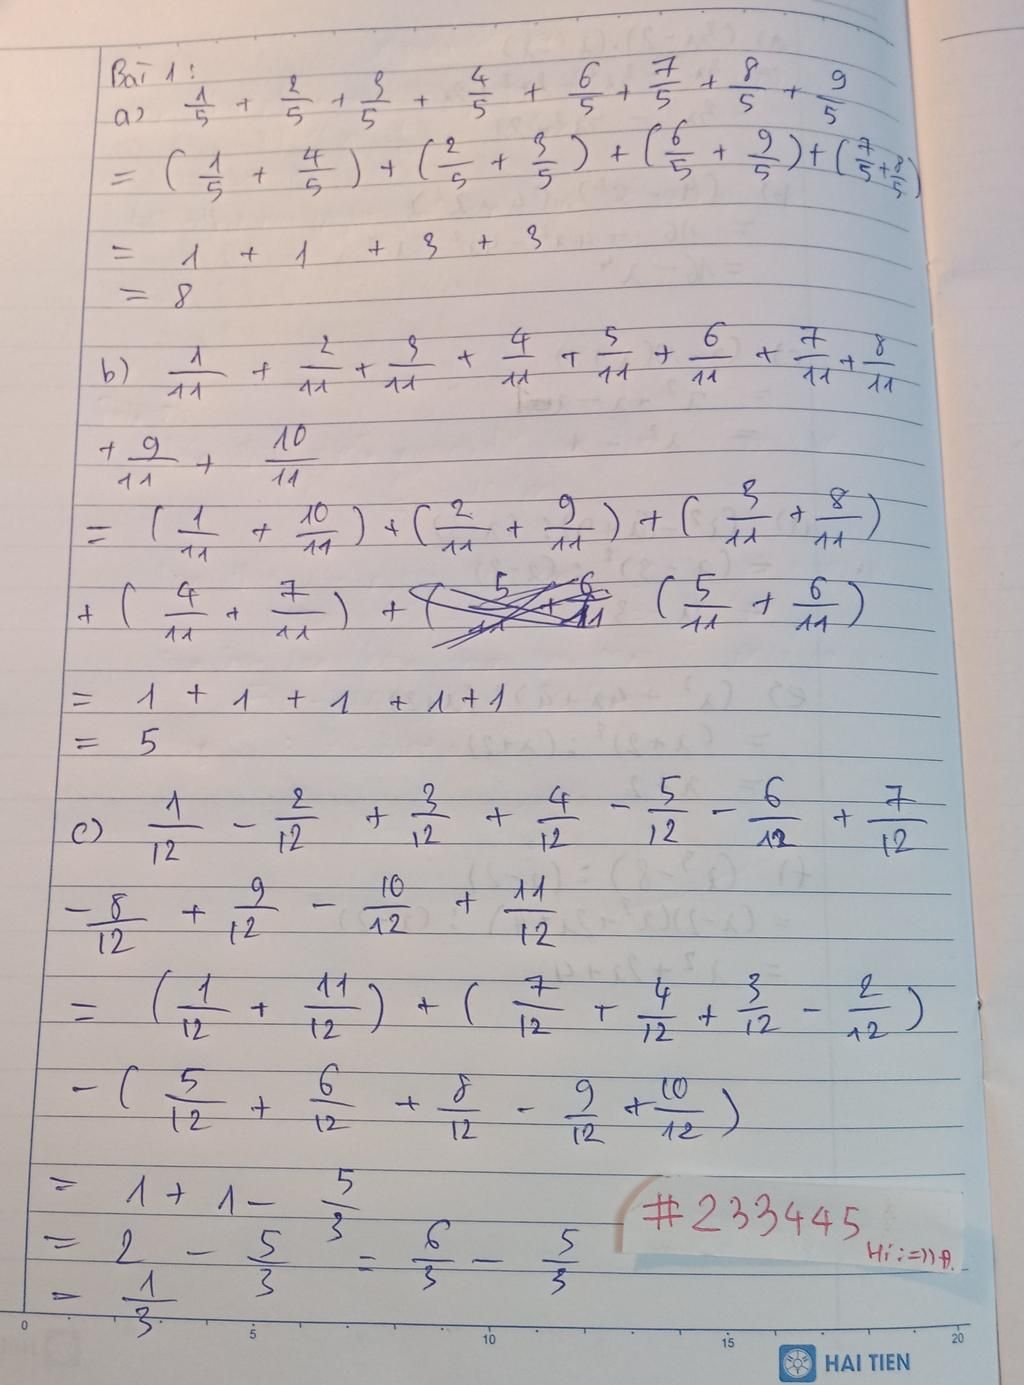 Bài 1:
a) 1/5 + 2/5 + 3/5 + 4/5 + 6/5 + 7/5 + 8/5 + 9/5
= (1/5 + 4/5) + (2/5 + 3/5) + (6/5 + 9/5) + (7/5 + 8/5)
= 1 + 1 + 3 + 3
= 8
b) 1/11 + 2/11 + 3/11 + 4/11 + 5/11 + 6/11 + 7/11 + 8/11
+ 9/11 + 10/11
= (1/11 + 10/11) + (2/11 + 9/11) + (3/11 + 8/11)
+ (4/11 + 7/11) + (5/11 + 6/11)
= 1 + 1 + 1 + 1 + 1
= 5
c) 1/12 - 2/12 + 3/12 + 4/12 - 5/12 - 6/12 + 7/12
- 8/12 + 9/12 - 10/12 + 11/12
= (1/12 + 11/12) + (7/12 + 4/12 + 3/12 - 2/12)
- (5/12 + 6/12 + 8/12 - 9/12 + 10/12)
= 1 + 1 - 5/3
= 2 - 5/3 = 6/3 - 5/3
= 1/3
#233445
0 5 10 15 20
HAI TIEN